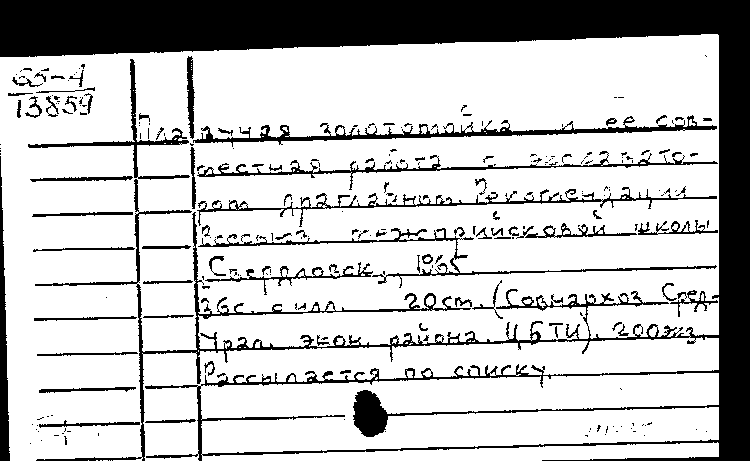 65-4
13859
Плавучая золотомойка и ее сов-
местная работа с экскавато-
ром драглайном. Рекомендации
Всесоюз. межприйсковой школы
Свердловск, 1965.
36с. с илл. 20см. (Совнархоз Сред-
Урал. экон. района. ЦБТИ). 200экз.
Рассылается по списку.